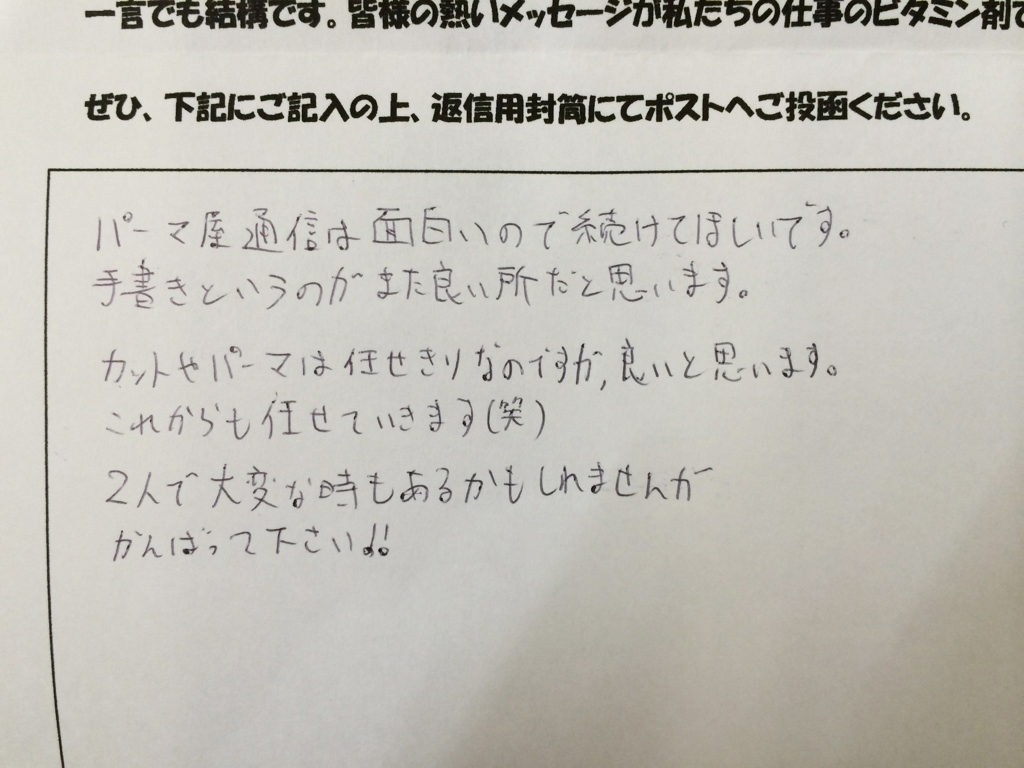 一言でも結構です。皆様の熱いメッセージが私たちの仕事のビタミン剤で
ぜひ、下記にご記入の上、返信用封筒にてポストへご投函ください。
パーマ屋通信は面白いので続けてほしいです。
手書きというのがまた良い所だと思います。
カットやパーマは任せきりなのですが、良いと思います。
これからも任せていきます(笑)
2人で大変な時もあるかもしれませんが
がんばって下さい!!